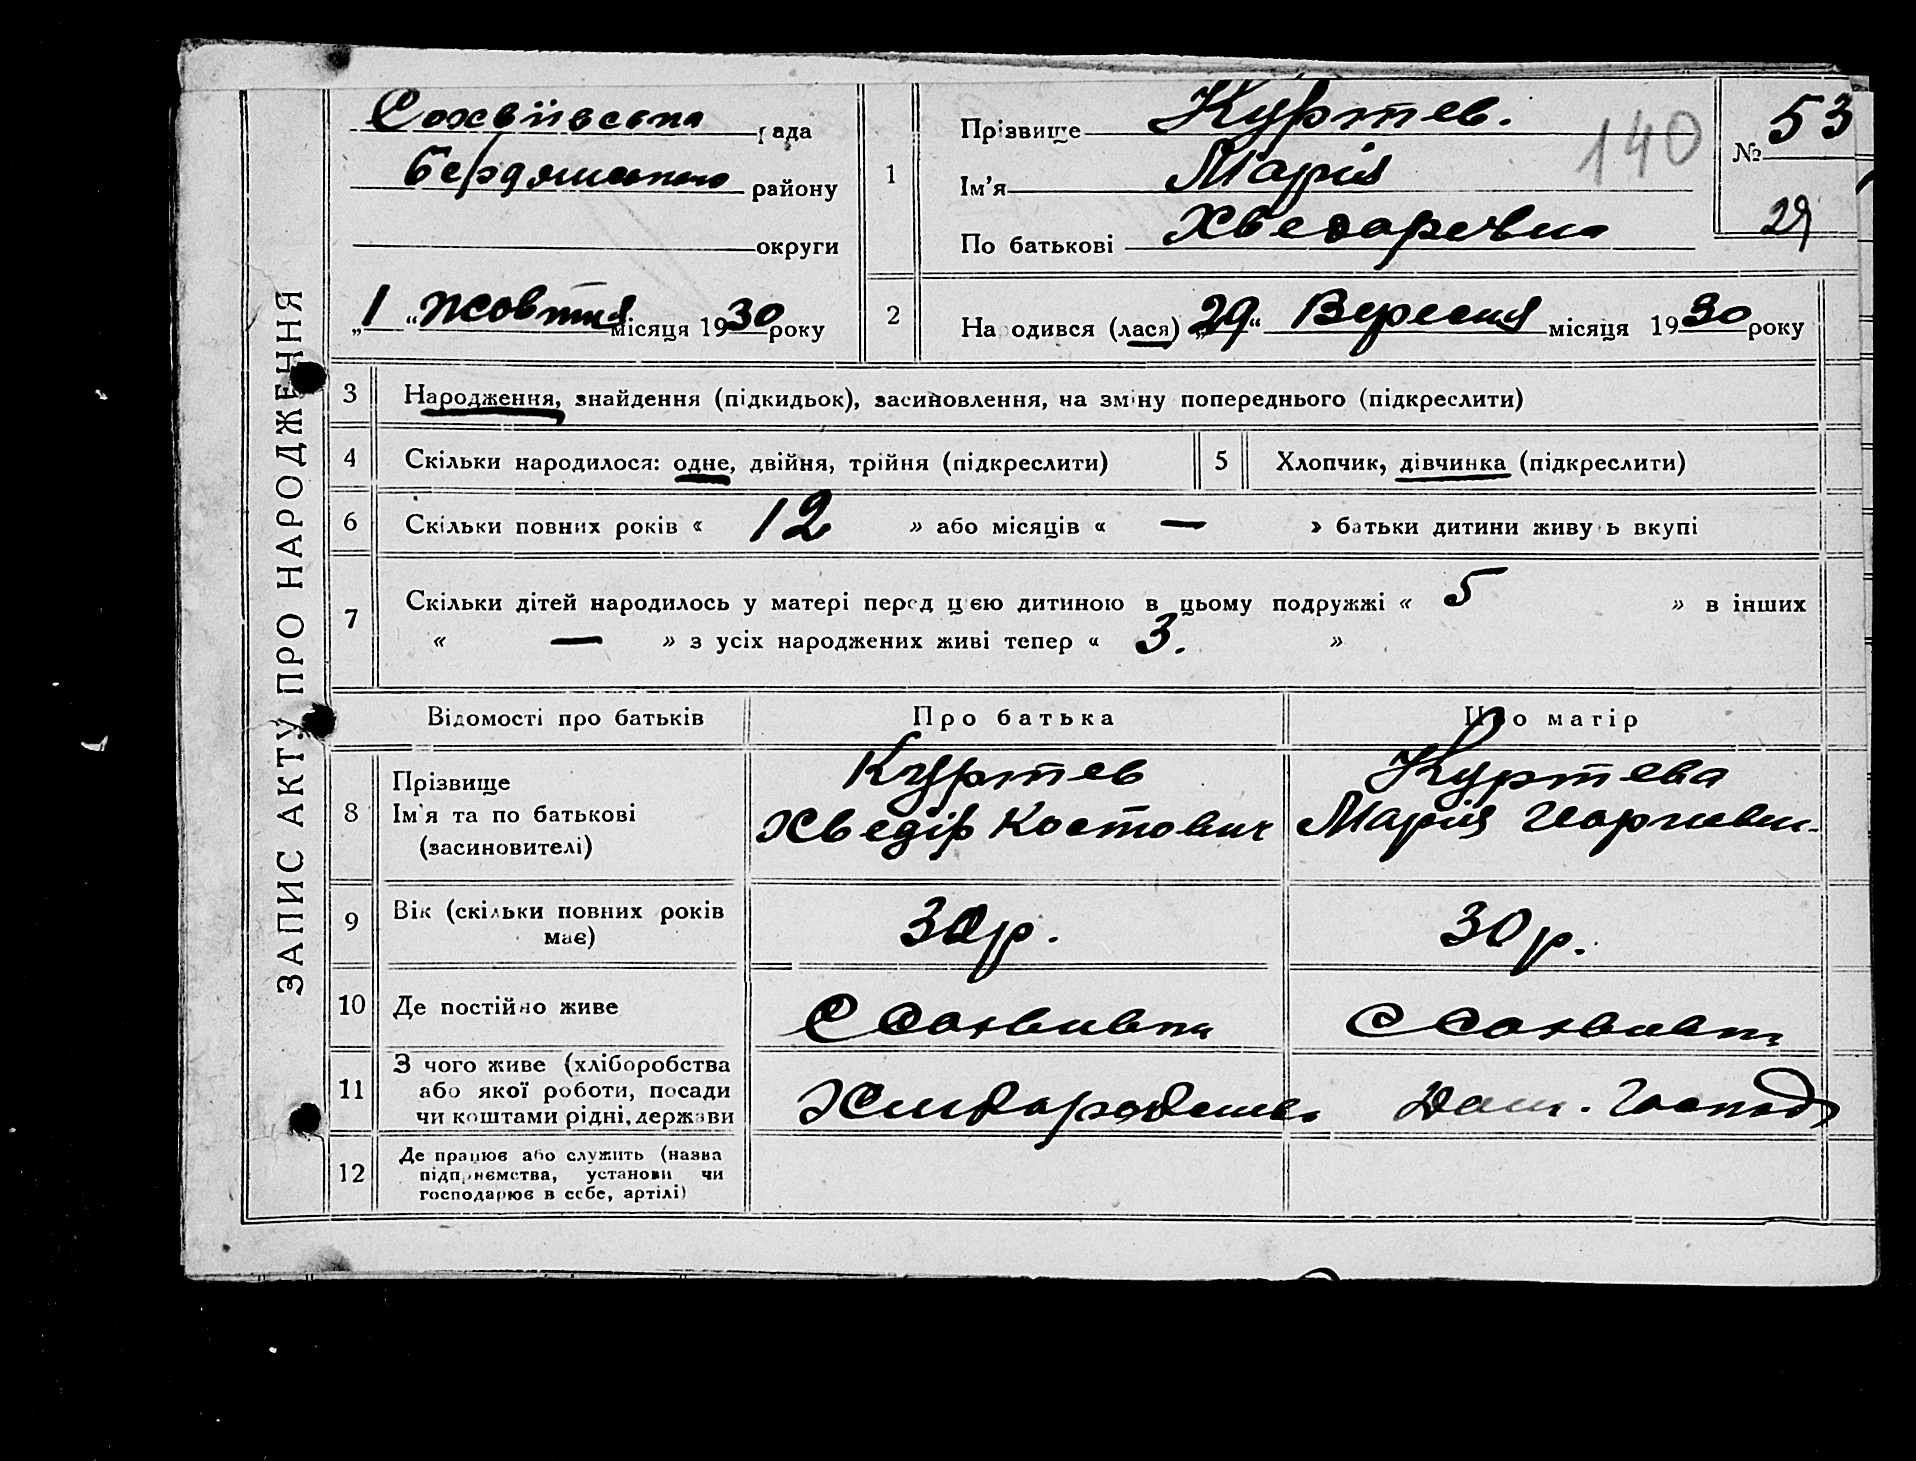 ЗАПИС АКТУ ПРО НАРОДЖЕННЯ
Сохвіївська рада
Бердянського району
округи
„1“ Жовтня місяця 1930 року
1
Прізвище Куртев.
Ім’я Марія
По батькові Хведоревна
140
№ 53
29
2
Народився (лася) „29“ Вересня місяця 1930 року
3 Народження, знайдення (підкидьок), засиновлення, на зміну попереднього (підкреслити)
4 Скільки народилося: одне, двійня, трійня (підкреслити)
5 Хлопчик, дівчинка (підкреслити)
6 Скільки повних років « 12 » або місяців « — » батьки дитини живуть вкупі
7 Скільки дітей народилось у матері перед цією дитиною в цьому подружжі « 5 » в інших
« — » з усіх народжених живі тепер « 3. »
Відомості про батьків Про батька Про матір
8 Прізвище Куртев Куртева
Ім’я та по батькові Хведір Костович Марія
(засиновителі)
9 Вік (скільки повних років має) 30 р. 30 р.
10 Де постійно живе С Сохвиівка С Сохвиівка
11 З чого живе (хліборобства
або якої роботи, посади
чи коштами рідні, держави Хліборобство Дом. Господ
12 Де працює або служить (назва
підприємства, установи чи
господарює в себе, артілі)